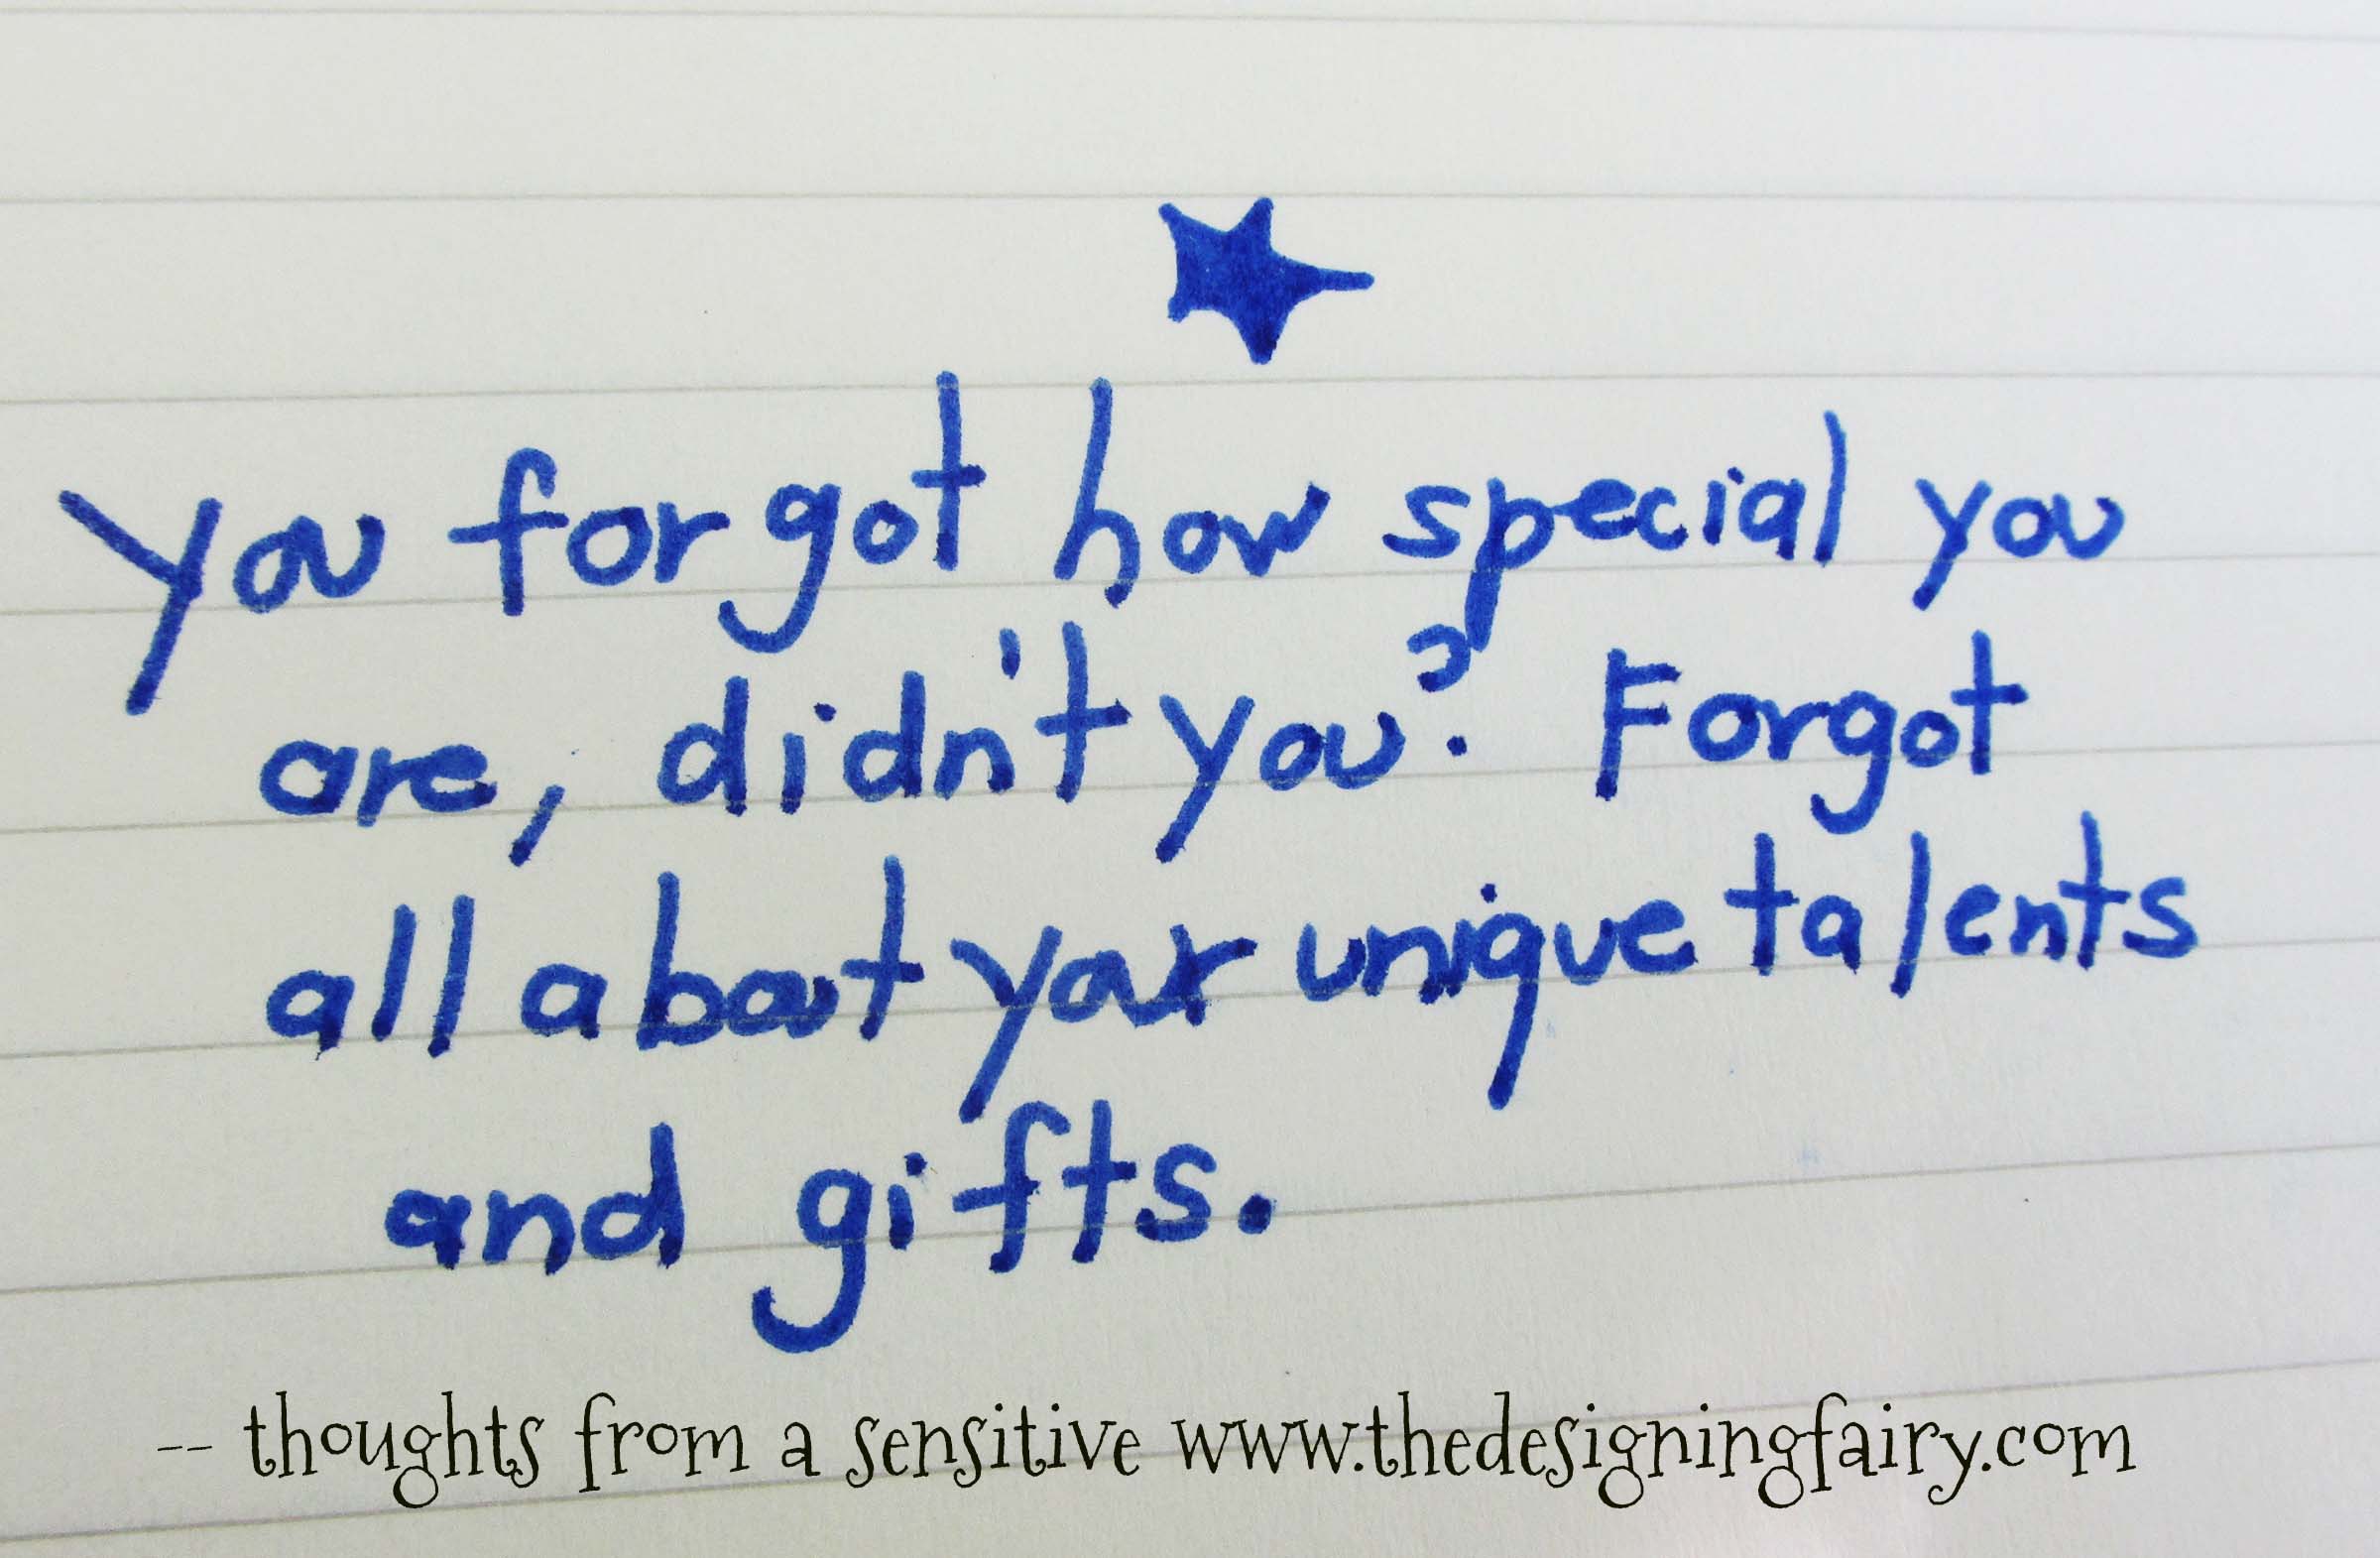 you forgot how special you
are, didn't you? Forgot
all about your unique talents
and gifts.
-- thoughts from a sensitive www.thedesigningfairy.com